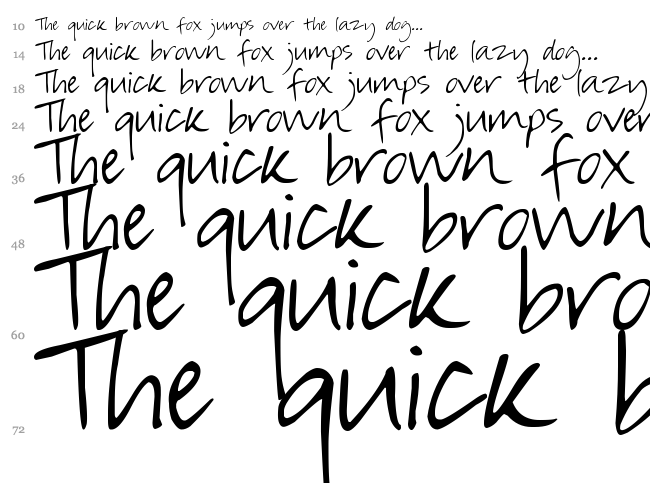 10 The quick brown fox jumps over the lazy dog...
14 The quick brown fox jumps over the lazy dog...
18 The quick brown fox jumps over the lazy
24 The quick brown fox jumps over
36 The quick brown fox
48 The quick brown
60 The quick bro
72 The quick b